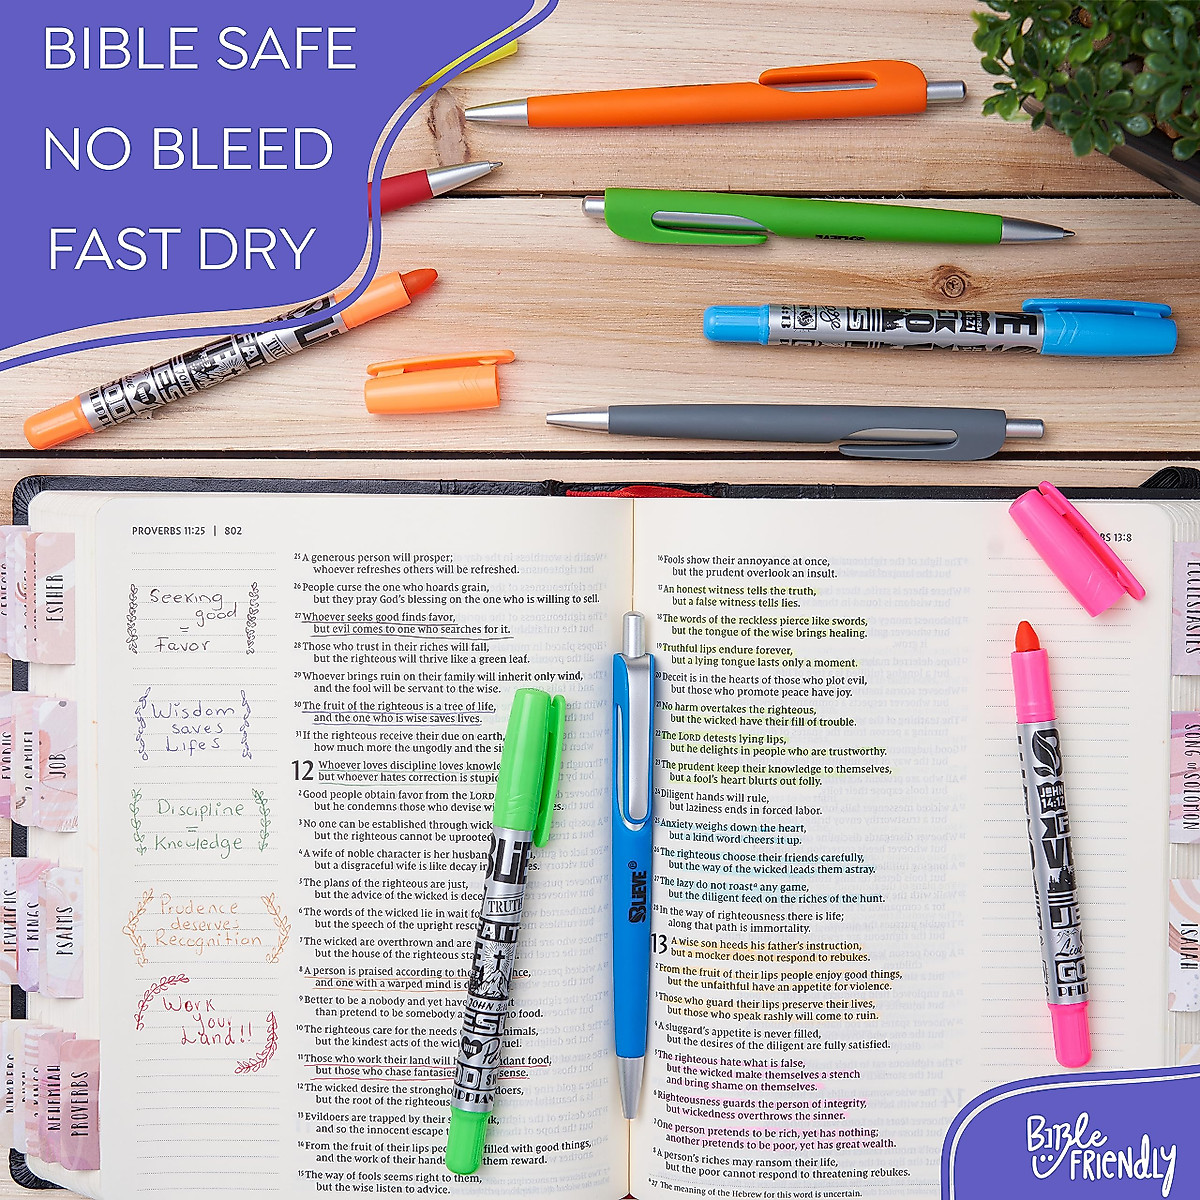 BIBLE SAFE
NO BLEED
FAST DRY
PROVERBS 11:25 | 802
25 A generous person will prosper;
whoever refreshes others will be refreshed.
26 People curse the one who hoards grain,
but they pray God's blessing on the one who is willing to sell.
27 Whoever seeks good finds favor,
but evil comes to one who searches for it.
28 Those who trust in their riches will fall,
but the righteous will thrive like a green leaf.
29 Whoever brings ruin on their family will inherit only wind,
and the fool will be servant to the wise.
30 The fruit of the righteous is a tree of life,
and the one who is wise saves lives.
31 If the righteous receive their due on earth,
how much more the ungodly and the
12 Whoever loves discipline loves
but whoever hates correction is stupid
2 Good people obtain favor from the LORD
but he condemns those who devise
3 No one can be established through
but the righteous cannot be uprooted
4 A wife of noble character is her
but a disgraceful wife is like decay
5 The plans of the righteous are just,
but the advice of the wicked is
6 The words of the wicked lie in wait
but the speech of the upright
7 The wicked are overthrown and are
but the house of the righteous
8 A person is praised according to
and one with a warped mind is
9 Better to be a nobody and yet have
than pretend to be somebody food.
10 The righteous care for the needs
but the kindest acts of the
11 Those who work their land will food,
but those who chase fantasies sense.
12 The wicked desire the
but the root of the righteous
13 Evildoers are trapped by their
and so the innocent escape
14 From the fruit of their lips filled with good things,
and the work of their hands them reward.
15 The way of fools seems right to them,
but the wise listen to advice.
Seeking
good
=
Favor
Wisdom
saves
Lifes
Discipline
=
Knowledge
Prudence
deserves
Recognition
Work
your
Land!!
16 Fools show their annoyance at once,
but the prudent overlook an insult.
17 An honest witness tells the truth,
but a false witness tells lies.
18 The words of the reckless pierce like swords,
but the tongue of the wise brings healing.
19 Truthful lips endure forever,
but a lying tongue lasts only a moment.
20 Deceit is in the hearts of those who plot evil,
but those who promote peace have joy.
21 No harm overtakes the righteous,
but the wicked have their fill of trouble.
22 The LORD detests lying lips,
but he delights in people who are trustworthy.
23 The prudent keep their knowledge to themselves,
but a fool's heart blurts out folly.
24 Diligent hands will rule,
but laziness ends in forced labor.
25 Anxiety weighs down the heart,
but a kind word cheers it up.
26 The righteous choose their friends carefully,
but the way of the wicked leads them astray.
27 The lazy do not roast a any game,
but the diligent feed on the riches of the hunt.
28 In the way of righteousness there is life;
along that path is immortality.
13 A wise son heeds his father's instruction,
but a mocker does not respond to rebukes.
2 From the fruit of their lips people enjoy good things,
but the unfaithful have an appetite for violence.
3 Those who guard their lips preserve their lives,
but those who speak rashly will come to ruin.
4 A sluggard's appetite is never filled,
but the desires of the diligent are fully satisfied.
5 The righteous hate what is false,
but the wicked make themselves a stench
and bring shame on themselves.
6 Righteousness guards the person of integrity,
but wickedness overthrows the sinner.
7 One person pretends to be rich, yet has nothing;
another pretends to be poor, yet has great wealth.
8 A person's riches may ransom their life,
but the poor cannot respond to threatening rebukes.
a 27 The meaning of the Hebrew for this word is uncertain.
13:8
ESTHER
JOB
PSALMS
1 KINGS
PROVERBS
NEHEMIAH
NUMBERS
ECCLESIASTES
SONG OF SOLOMON
ISAIAH
BLIEVE®
TRUTH
JOHN
14:12
Bible
FRIENDLY